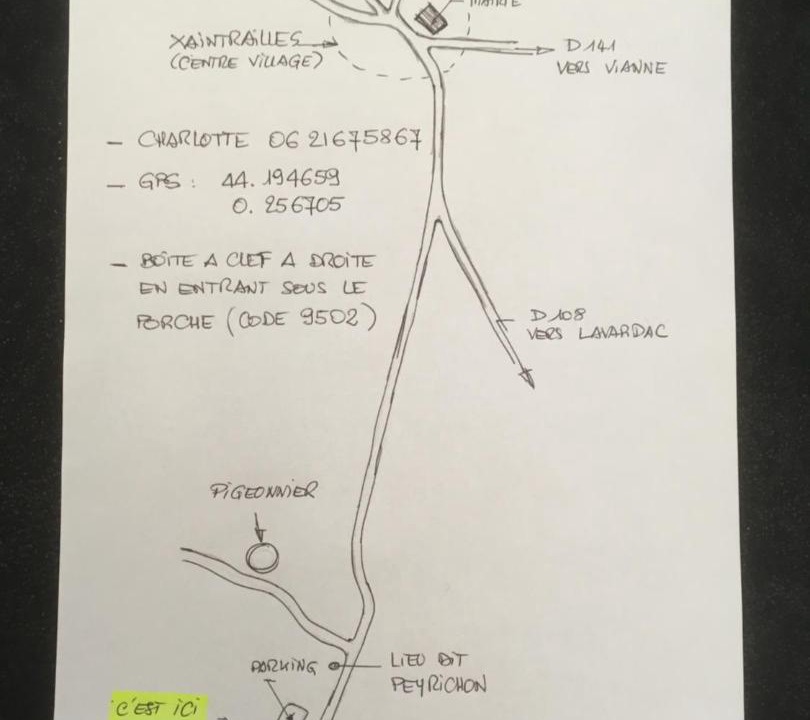 MAIRIE
XAINTRAILLES
(CENTRE VILLAGE)
D 141
VERS VIANNE
– CHARLOTTE 06 21675867
– GPS : 44. 194659
0. 256705
– BOÎTE A CLEF A DROITE
EN ENTRANT SOUS LE
PORCHE (CODE 9502)
D 108
VERS LAVARDAC
PIGEONNIER
PARKING
LIEU DIT
PEYRICHON
C'EST ICI